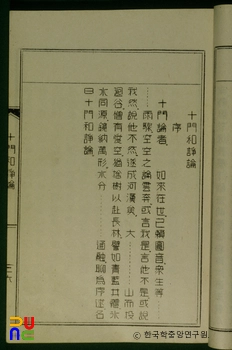 十門和諍論
序
十門論者 如來在世已賴圓音衆生等……
……雨驟空空之論雲奔或言我是言他不是或說
我然說他不然遂成河漢矣 大……山而投
廻谷憎有愛空猶捨樹以赴長林譬如靑藍共體氷
水同源鏡納萬形水分……通融聊爲序述名
曰十門和諍論
十門和諍論
ⓒ 한국학중앙연구원